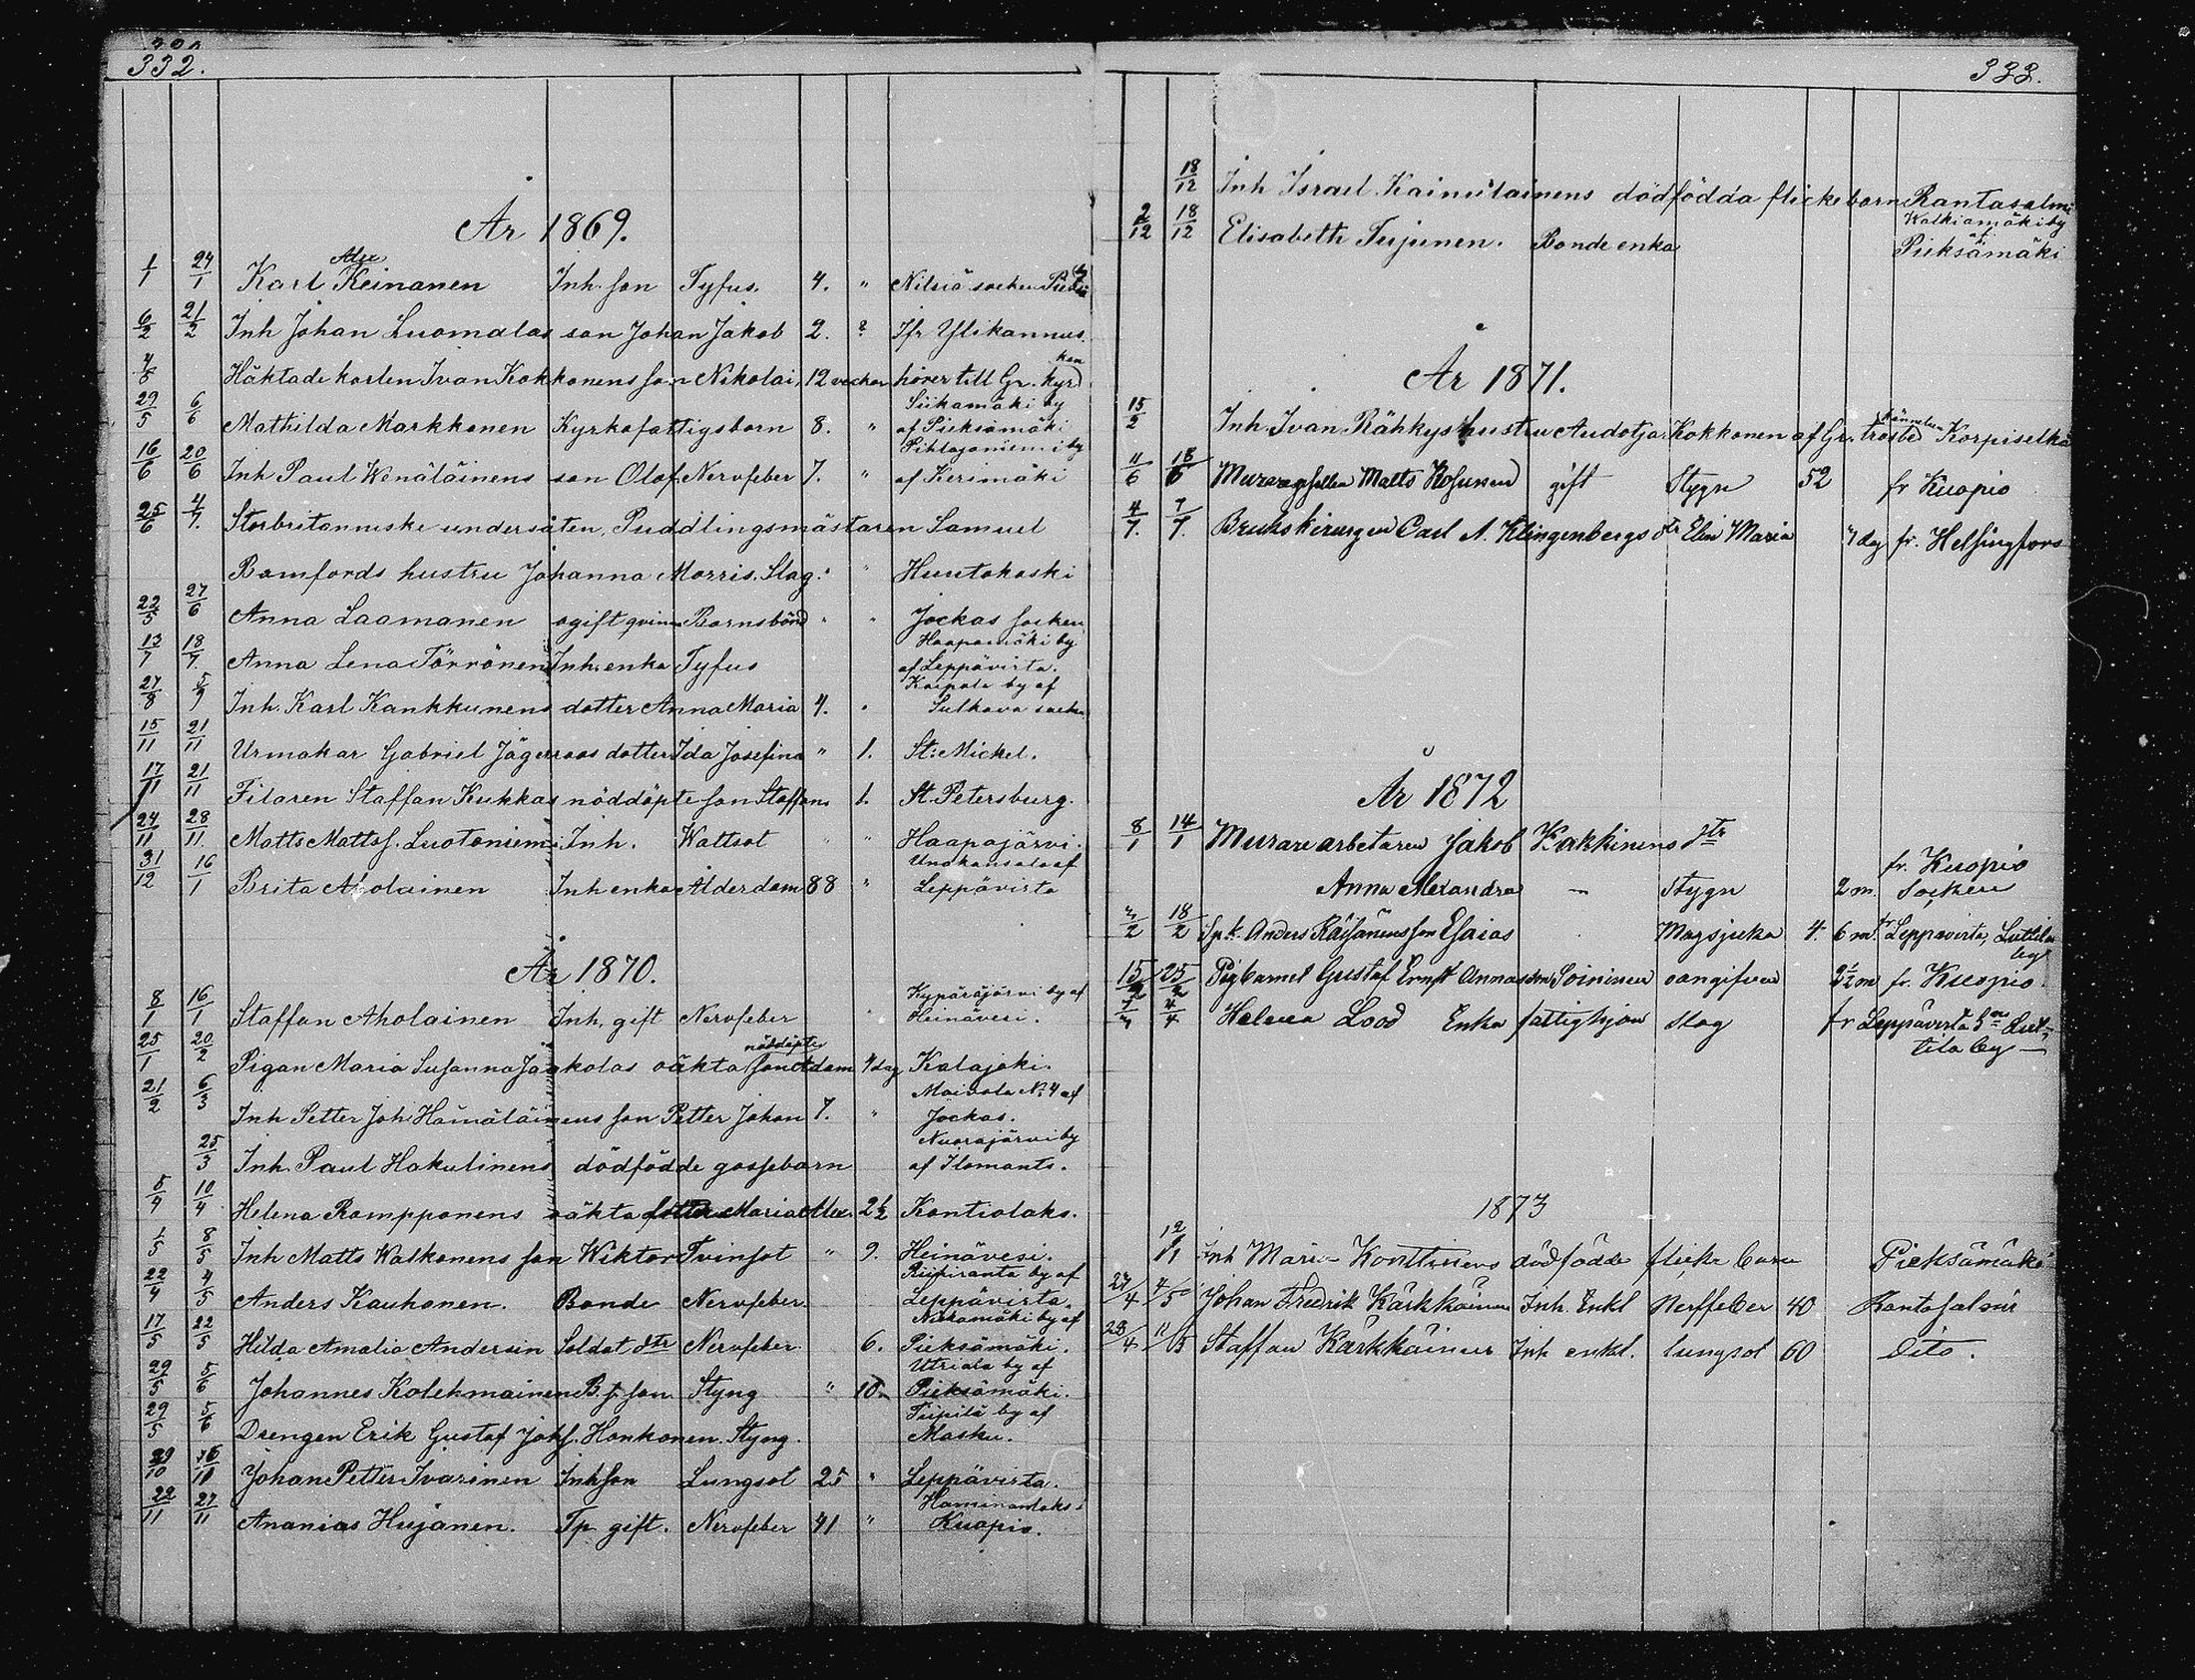 332.
År 1869.
1/1 24/1 Karl Alex Keinanen Inh. son Tyfus. 4. " Nilsiä socken
6/2 21/2 Inh Johan Luomalas son Johan Jakob 2. ? Ifr Ylikannus.
4/8 Häktade karlen Ivan Kokkonens son Nikolai 12 veckor hörer till Gr. kyrkan
Siikamäki by
29/5 6/6 Mathilda Markkanen Kyrkofattigsbarn 8. " af Pieksämäki
Pihlajaniemi by
16/6 20/6 Inh Paul Wenäläinens son Olof Nervfeber 7. " af Kerimäki
25/6 4/7. Storbritanniske undersåten, Puddlingsmästaren Samuel
Bamfords hustru Johanna Morris. Slag. " Huutokoski
22/5 27/6 Anna Laamanen ogift qvinna Barnsbörd " " Jockas socken
Haapamäki by
13/7 18/7. Anna Lena Törrönen Inh. enka Tyfus af Leppävirta.
Kaipola by af
27/8 5/9 Inh. Karl Kankkunens dotter Anna Maria 4. " Sulkava socken
15/11 21/11 Urmakar Gabriel Jägerroos dotter Ida Josefina " 1. St. Mickel.
17/11 21/11 Filaren Staffan Kukkas nöddöpte son Staffan 1. St. Petersburg.
24/11 28/11. Matts Mattss. Luotoniemi Inh. Wattsot " " Haapajärvi.
31/12 16/1 Brita Aholainen Inh enka Ålderdom 88 " Leppävirta
År 1870.
Kypäräjärvi by af
8/1 16/1 Staffan Aholainen Inh, gift Nervfeber " Heinävesi.
nöddöpte
25/1 20/2 Pigan Maria Susanna Jaakolas oäkta son Adam 4 dag Kalajoki.
Maivala No 4 af
21/2 6/3 Inh Petter Joh Hämäläinens son Petter Johan 7. " Jockas.
Nuorajärvi by
25/3 Inh. Paul Hakulinens dödfödde gossebarn af Ilomants.
5/4 10/4 Helena Rampponens oäkta dotter Maria Alex. 2 1/2 Kontiolaks.
1/5 8/5 Inh Matts Walkonens son Wiktor Tvinsot " 9. Heinävesi.
Riipiranta by af
22/4 4/5 Anders Kauhanen. Bonde Nervfeber. Leppävirta.
Niskamäki by af
17/5 22/5 Hilda Amalia Andersin Soldat dtr Nervfeber. 6. Pieksämäki.
Utriala by af
29/5 5/6 Johannes Kolehmainen B. s. son Styng " 10. Pieksämäki.
by af
29/5 5/6 Drengen Erik Gustaf Johs. Honkonen. Styng. Masku.
/10 Johan Petter Ivarinen Inh son Lungsot 25 " Leppävirta.
Haminanlaks
22/11 27/11 Ananias Hujanen. Tp. gift. Nervfeber 41 " Kuopio.
333.
18/12 Inh Israel Kainulainens dödfödda flickebarn Rantasalmi
Walkiamäki by af
2/12 18/12 Elisabeth Tujunen. Bonde enka Pieksämäki
År 1871.
15/2 Inh. Ivan Rähkys hustru Audotja Kokkonen af Gr. trosbekännelsen Korpiselkä
11/6 18/6 Muraregesällen Matts Kosunen gift Stygn 52 fr Kuopio
4/7. 7/7. Brukskirurgen Carl A. Klingenbergs dtr Elin Maria 4 dag fr. Helsingfors
År 1872
8/1 14/1 Murarearbetaren Jakob Kakkinens dtr
fr. Kuopio
Anna Alexandra — Stygn 2 m. Socken
3/2 18/2 Spk. Anders Räisänens son Esaias Magsjuka 4. 6 m. fr Leppävirta, Luttila
by
15/2 25/2 Pigbarnet Gustaf Ernst Annasson Soininen oangifven 2 1/2 m fr. Kuopio
4/4 Helena Lood Enka fattighjon slag fr Leppävirta sn Lut-
tila by —
1873
12/1 Inh Maria Konttinens dödfödde flicke barn Pieksämäki
27/4 4/5 Johan Fredrik Kärkkäinen Inh. Enkl Nerffeber 40 Rantasalmi
23/4 11/5 Staffan Kärkkäinen Inh enkl. lungsot 60 Dito.